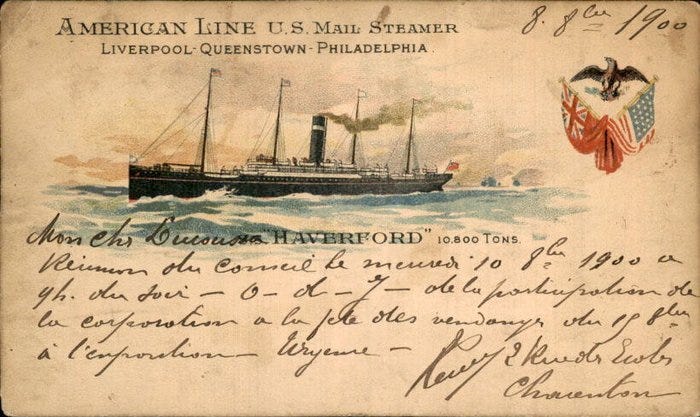 AMERICAN LINE U.S. MAIL STEAMER
LIVERPOOL-QUEENSTOWN-PHILADELPHIA.
8. 8bre 1900
Mon cher
"HAVERFORD" 10.800 TONS.
Réunion du conseil le mercredi 10 8bre 1900 a
9h. du soir - O-d-J- de la participation de
la corporation a la fete des vendanges du 15 8bre
à l'exposition - Urgence - 2 Rue des Ecoles
Charenton